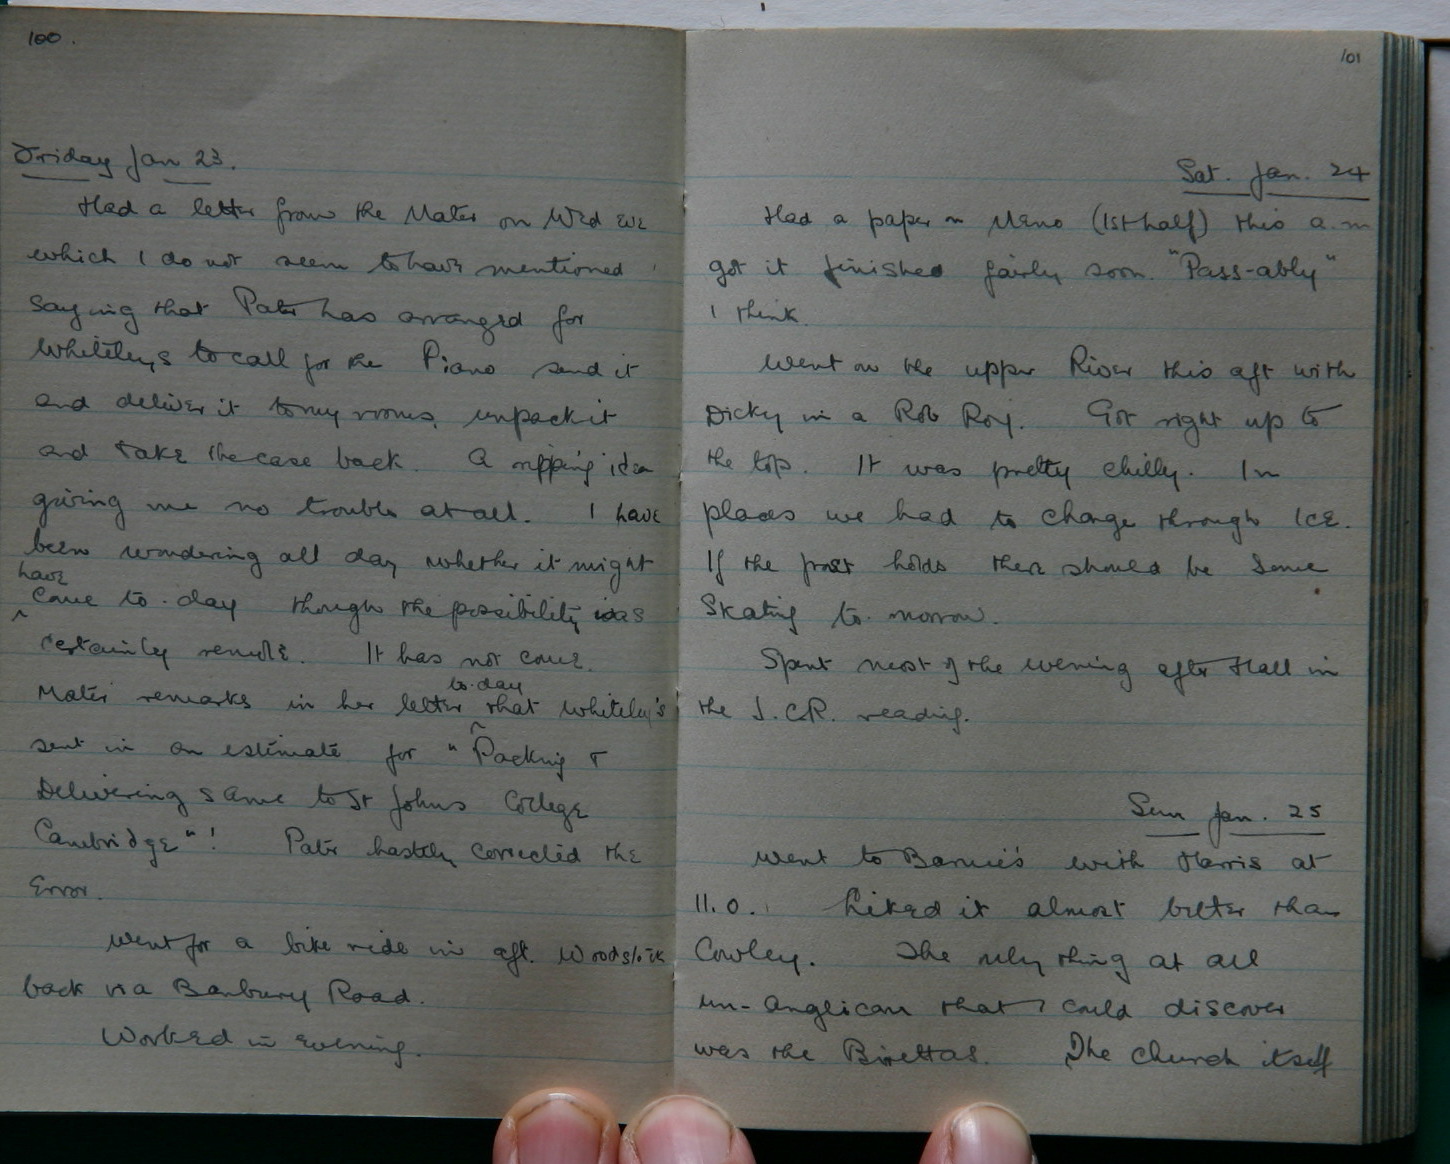 100.
Friday Jan 23.
Had a letter from the Mater on Wed eve
which I do not seem to have mentioned
saying that Pater has arranged for
Whiteleys to call for the Piano send it
and deliver it to my rooms, unpack it
and take the case back. A ripping idea
giving me no trouble at all. I have
been wondering all day whether it might
have
come to-day though the possibility was
certainly remote. It has not come.
to-day
Mater remarks in her letter that Whiteley's
sent in an estimate for "Packing &
Delivering same to St Johns College
Cambridge"! Pater hastily corrected the
Error.
Went for a bike ride in aft. Woodstock
back via Banbury Road.
Worked in Evening.
101
Sat. Jan. 24
Had a paper on Meno (1st half) this a.m
got it finished fairly soon. "Pass-ably"
I think.
Went on the upper River this aft with
Dicky in a Rob Roy. Got right up to
the top. It was pretty chilly. In
places we had to charge through Ice.
If the frost holds there should be Some
Skating to-morrow.
Spent most of the evening after Hall in
the J.C.R. reading.
Sun Jan. 25
Went to Barnie's with Harris at
11.0. Liked it almost better than
Cowley. The only thing at all
un-Anglican that I could discover
was the Birettas. The church itself